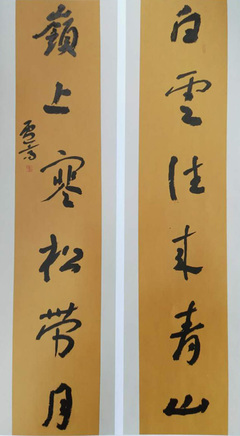 白雲往来青山
嶺上寒松带月